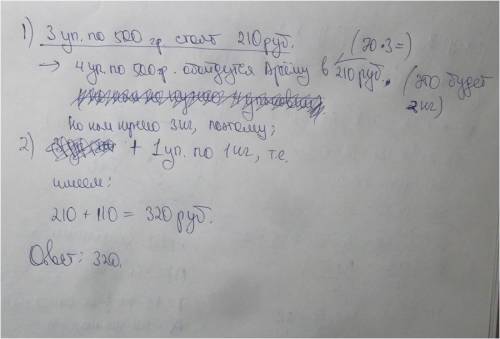 1) 3 уп. по 500 гр. стоят 210 руб. (70·3=)
→ 4 уп. по 500 гр. обойдутся Артёму в 210 руб. (это будет 2 кг)
Но нам нужно 3 кг, поэтому:
2) + 1 уп. по 1 кг, т.е.
имеем:
210 + 110 = 320 руб.
Ответ: 320.